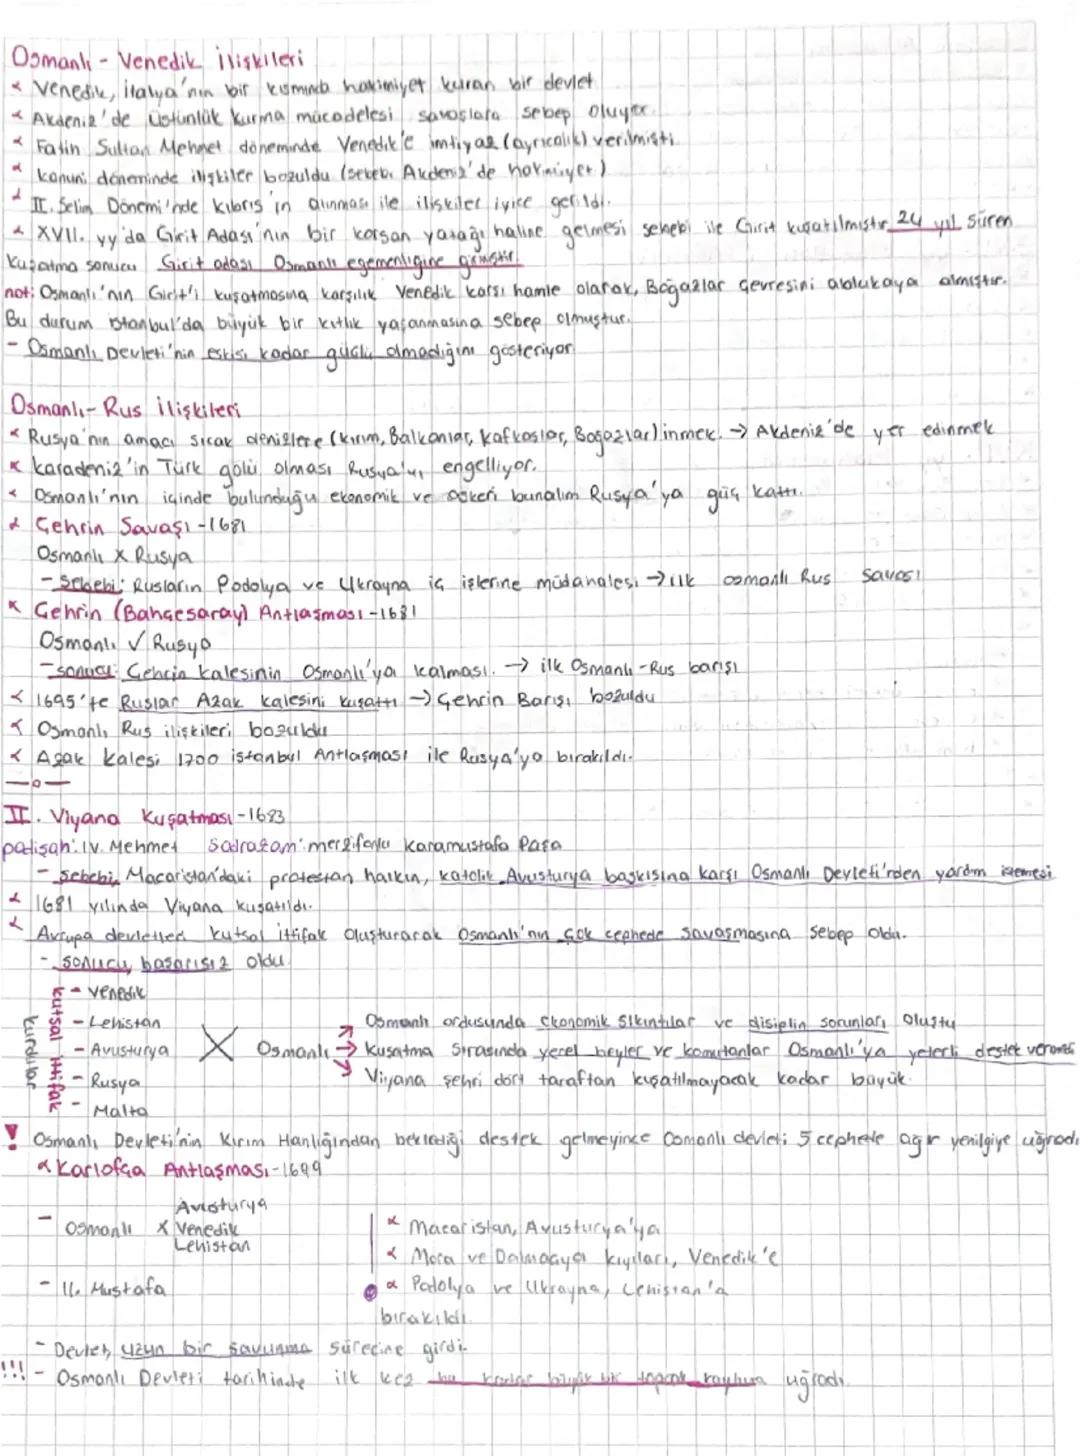 Osmanlı - Venedik İlişkileri
Venedik, İtalya'nın bir kısmında hakimiyet kuran bir devlet
Akdeniz'de üstünlük kurma mücadelesi savaşlara sebep oluyor.
Fatih Sultan Mehmet döneminde Venedik'e imtiyaz (ayrıcalık) verilmişti.
Kanuni döneminde ilişkiler bozuldu (sebebi Akdeniz'de hakimiyet)
II. Selim Dönemi'nde Kıbrıs'ın alınması ile ilişkiler iyice gerildi.
XVII. yy'da Girit Adası'nın bir korsan yatağı haline gelmesi sebebi ile Girit kuşatılmıştır. 24 yıl süren
kuşatma sonucu Girit adası Osmanlı egemenliğine girmiştir.
not: Osmanlı'nın Girit'i kuşatmasına karşılık Venedik karşı hamle olarak, Boğazlar çevresini ablukaya almıştır.
Bu durum İstanbul'da büyük bir kıtlık yaşanmasına sebep olmuştur.
- Osmanlı Devleti'nin eskisi kadar güçlü olmadığını gösteriyor
Osmanlı - Rus İlişkileri
Rusya'nın amacı sıcak denizlere (Kırım, Balkanlar, Kafkaslar, Boğazlar) inmek. → Akdeniz'de yer edinmek
Karadeniz'in Türk gölü olması Rusya'yı engelliyor.
Osmanlı'nın içinde bulunduğu ekonomik ve askeri bunalım Rusya'ya güç kattı.
Çehrin Savaşı - 1681
Osmanlı X Rusya
- Sebebi: Rusların Podolya ve Ukrayna iç işlerine müdahalesi → ilk osmanlı Rus savaşı
Çehrin (Bahçesaray) Antlaşması - 1681
Osmanlı √ Rusya
- sonucu: Çehrin kalesinin Osmanlı'ya kalması. → ilk Osmanlı - Rus barışı
1695'te Ruslar Azak kalesini kuşattı → Çehrin Barışı bozuldu
Osmanlı Rus ilişkileri bozuldu
Azak Kalesi 1700 İstanbul Antlaşması ile Rusya'ya bırakıldı.
—o—
II. Viyana Kuşatması - 1683
padişah: IV. Mehmet sadrazam: merzifonlu karamustafa Paşa
- sebebi; Macaristan'daki protestan halkın, katolik Avusturya baskısına karşı Osmanlı Devleti'nden yardım istemesi
1681 yılında Viyana kuşatıldı.
Avrupa devletleri kutsal ittifak oluşturarak Osmanlı'nın çok cephede savaşmasına sebep oldu.
- sonucu, başarısız oldu
kutsal ittifak kurdular
- Venedik
- Lehistan
- Avusturya
- Rusya
- Malta
X Osmanlı
→ Osmanlı ordusunda ekonomik sıkıntılar ve disiplin sorunları oluştu
→ Kuşatma sırasında yerel beyler ve komutanlar Osmanlı'ya yeterli destek vermedi
→ Viyana şehri dört taraftan kuşatılmayacak kadar büyük.
! Osmanlı Devleti'nin Kırım Hanlığından beklediği destek gelmeyince Osmanlı devleti 5 cephede ağır yenilgiye uğradı
Karlofça Antlaşması - 1699
- Osmanlı X Avusturya
Venedik
Lehistan
- II. Mustafa
Macaristan, Avusturya'ya
Mora ve Dalmaçya kıyıları, Venedik'e
Podolya ve Ukrayna, Lehistan'a
bırakıldı.
- Devlet, uzun bir savunma sürecine girdi.
!!! - Osmanlı Devleti tarihinde ilk kez bu kadar büyük bir toprak kaybına uğradı.